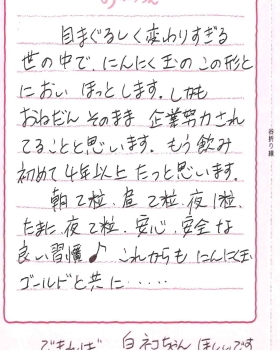 目まぐるしく変わりすぎる
世の中で、にんにく玉の この形と
におい ほっとします。しかも
おねだん そのまま 企業努力され
てることと思います。もう飲み
初めて 4年以上 たっと思います。
朝 2粒、昼 2粒、夜 1粒、
たまに 夜 2粒、安心、安全な
良い習慣♪ これからも にんにく玉
ゴールドと共に・・・・・
できれば 白ネコちゃん ほしいです
谷折り線